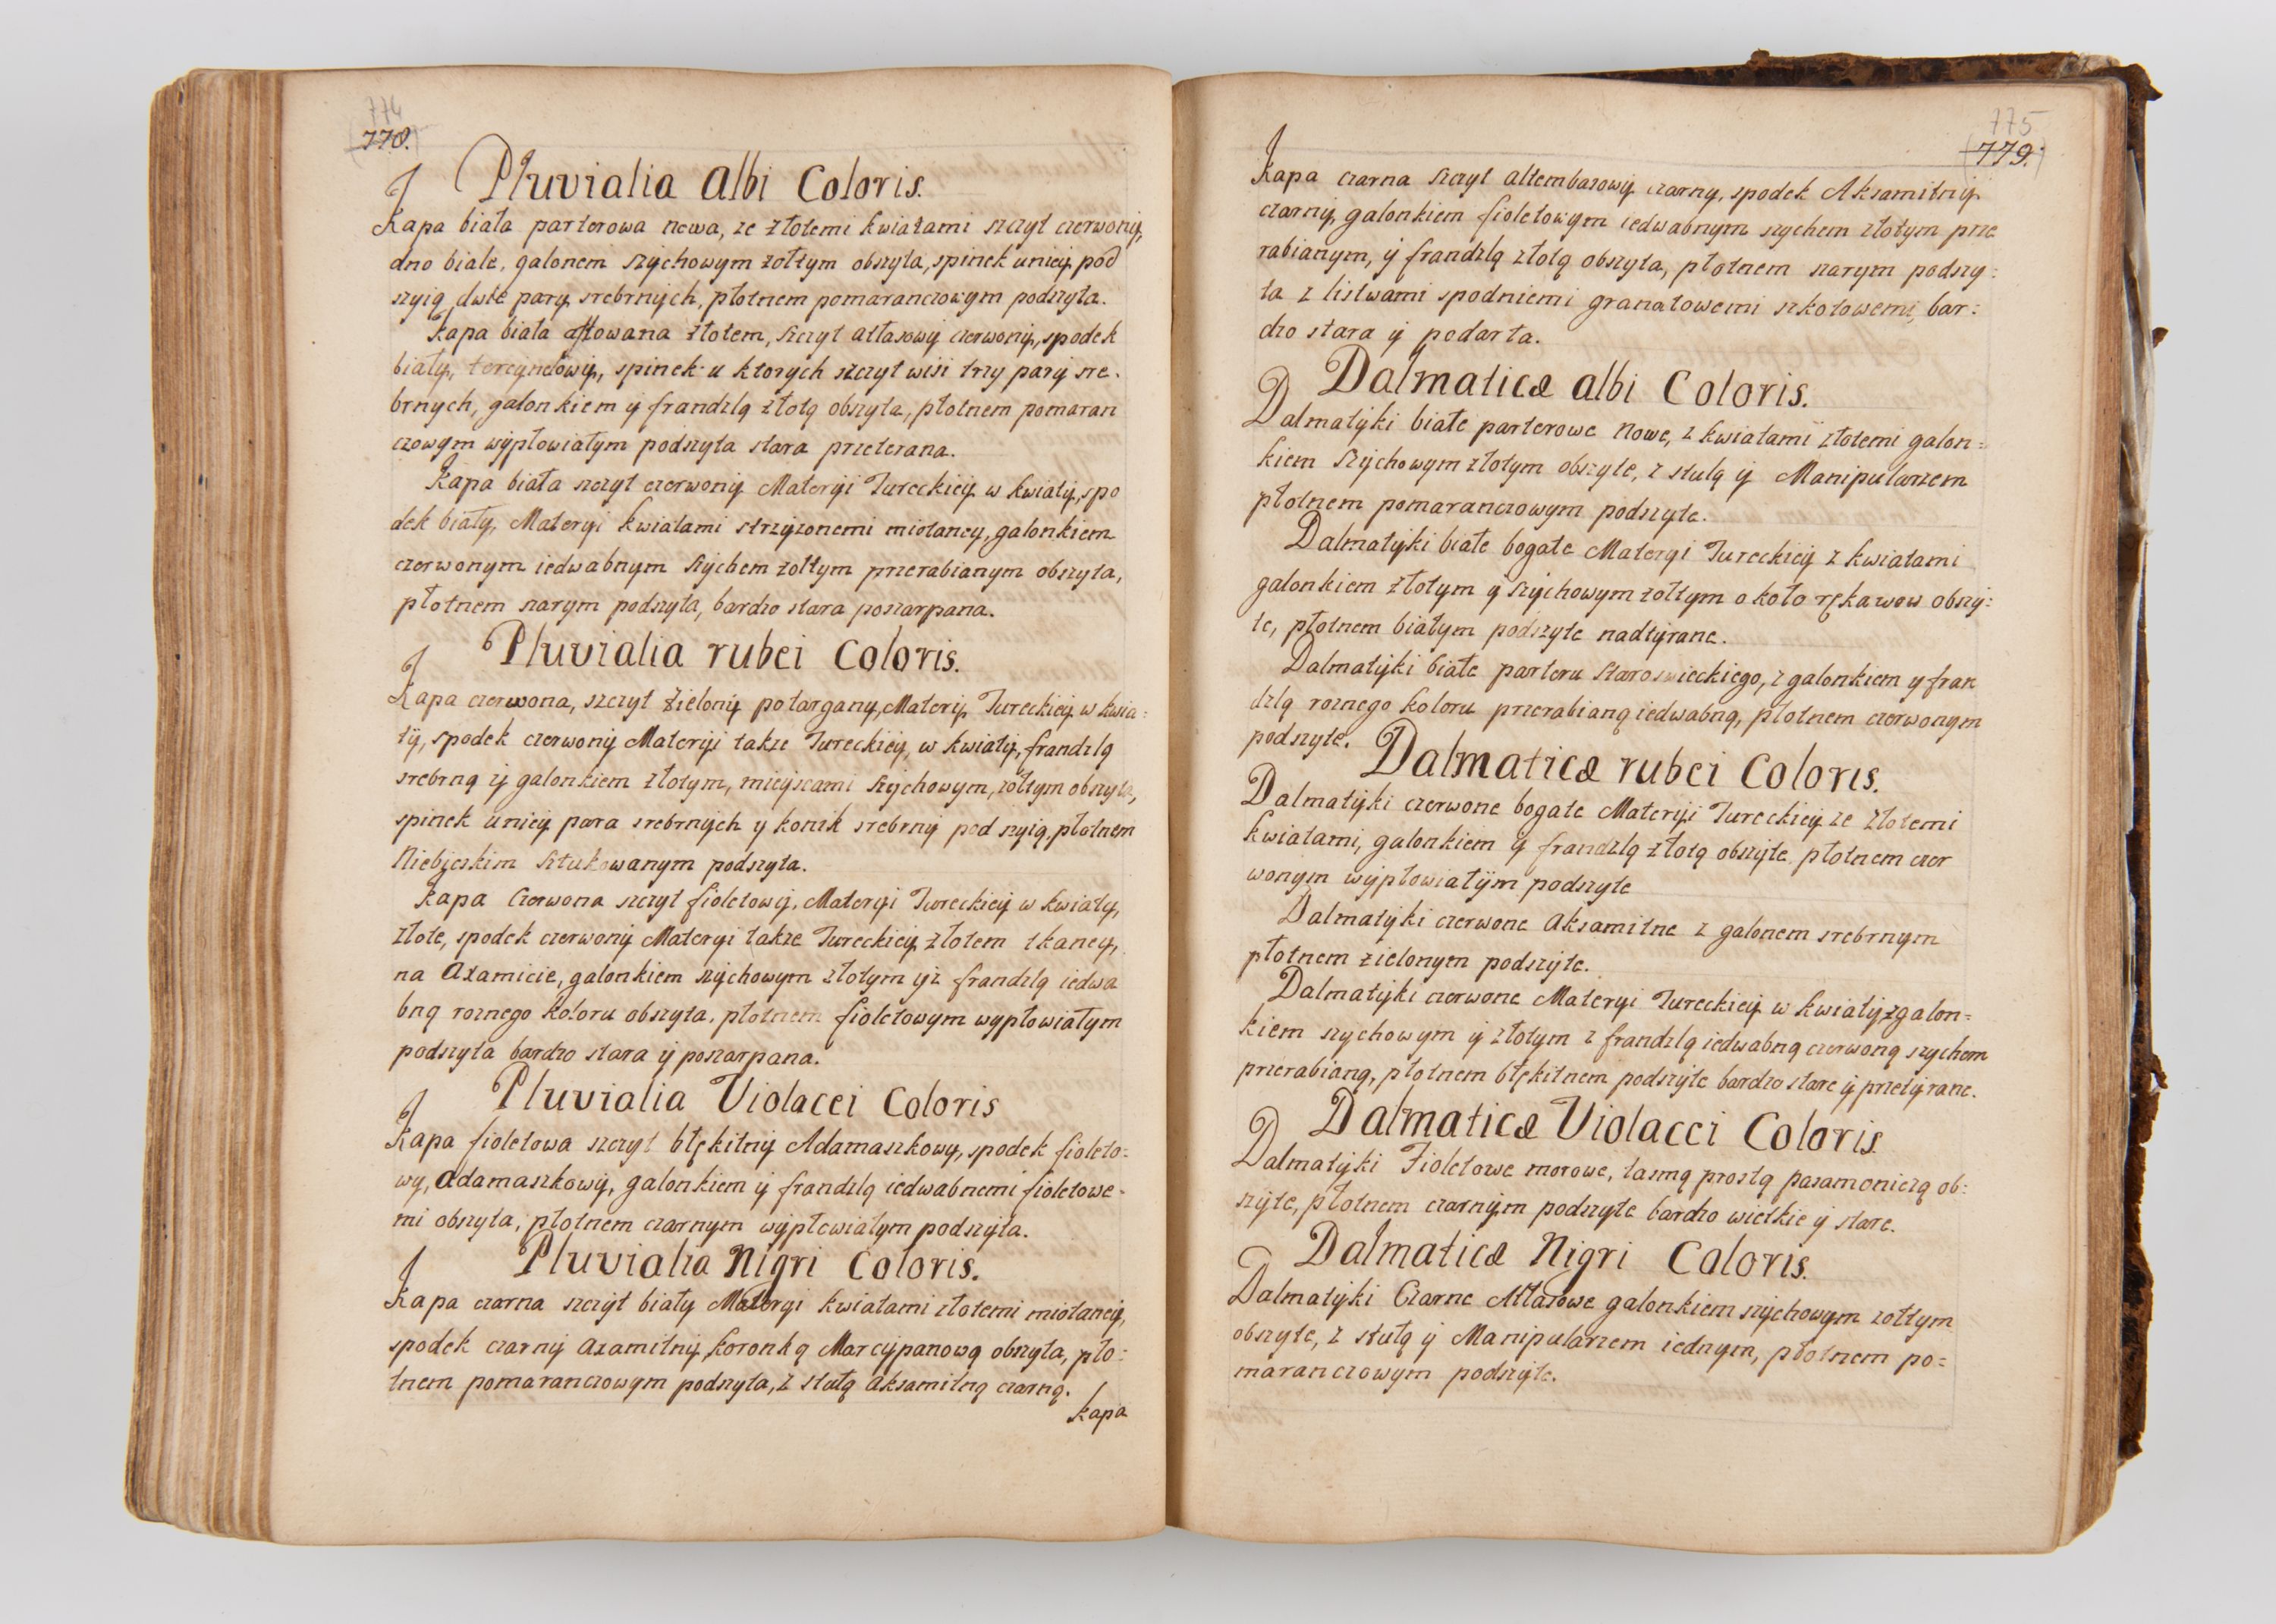 774
778.
Pluvialia albi Coloris.
Kapa biała parterowa nowa, ze złotemi kwiatami szczyt czerwony,
dno białe, galonem szychowym zołtym obszyta, spinek uniey pod
szyią dwie pary srebrnych, płotnem pomaranczowym podszyta.
Kapa biała aftowana złotem, szczyt atłasowy czerwony, spodek
biały, tercynelowy, spinek u ktorych szczyt wisi trzy pary sre-
brnych, galonkiem y frandzlą złotą obszyta, płotnem pomaran
czowym wypłowiałym podszyta stara przeterana.
Kapa biała szczyt czerwony Materyi Tureckiey w kwiaty, spo
dek biały, Materyi kwiatami strzyzonemi miotaney, galonkiem
czerwonym iedwabnym szychem zołtym przerabianym obszyta,
płotnem szarym podszyta, bardzo stara poszarpana.
Pluvialia rubei Coloris.
Kapa czerwona, szczyt zielony potargany, Materij Tureckiey w kwia=
ty, spodek czerwony Materyi takze Tureckiey, w kwiaty, frandzlą
srebrną y galonkiem złotym, mieyscami szychowym, zołtym obszyta,
spinek uniey para srebrnych y konik srebrny pod szyią, płotnem
Niebjeskim sztukowanym podszyta.
Kapa Czerwona szczyt fioletowy, Materyi Tureckiey w kwiaty,
złote, spodek czerwony Materyi takze Tureckiey złotem tkaney,
na axamicie, galonkiem szychowym złotym yz frandzlą iedwa
bną roznego koloru obszyta, płotnem fioletowym wypłowiałym
podszyta bardzo stara y poszarpana.
Pluvialia Violacei Coloris
Kapa fioletowa szczyt błękitny Adamaszkowy, spodek fioleto=
wy, adamaszkowy, galonkiem y frandzlą iedwabnemi fioletowe-
mi obszyta, płotnem czarnym wypłowiałym podszyta.
Pluvialia Nigri Coloris.
Kapa czarna szczyt biały Materyi kwiatami złotemi miotaney,
spodek czarny axamitny, koronką Marcypanową obszyta, pło=
tnem pomaranczowym podszyta, z stułą aksamitną czarną.
Kapa
775
779.
Kapa czarna szczyt altembasowy czarny, spodek Aksamitny
czarny, galonkiem fioletowym iedwabnym szychem złotym prze
rabianym, y frandzlą złotą obszyta, płotnem szarym podszy=
ta z listwami spodniemi granatowemi szkotowemi, bar=
dzo stara y podarta.
Dalmaticæ albi Coloris.
Dalmatyki białe parterowe Nowe, z kwiatami złotemi galon=
kiem szychowym złotym obszyte, z stułą y Manipularzem
płotnem pomaranczowym podszyte.
Dalmatyki białe bogate Materyi Tureckiey z kwiatami
galonkiem złotym y szychowym zołtym około rękawow obszy=
te, płotnem białym podszyte nadtyrane.
Dalmatyki białe parteru staroswieckiego, z galonkiem y fran
dzlą roznego koloru przerabianą iedwabną, płotnem czerwonym
podszyte.
Dalmaticæ rubei Coloris.
Dalmatyki czerwone bogate Materyi Tureckiey ze złotemi
kwiatami, galonkiem y frandzlą złotą obszyte płotnem czer
wonym wypłowiałym podszyte
Dalmatyki czerwone aksamitne z galonem srebrnym
płotnem zielonym podszyte.
Dalmatyki czerwone Materyi Tureckiey w kwiaty, z galon=
kiem szychowym y złotym z frandzlą iedwabną czerwoną szychem
przerabianą, płotnem błękitnem podszyte bardzo stare y przetyrane.
Dalmaticæ Violacei Coloris.
Dalmatyki Fioletowe morowe, tasmą prostą pasamoniczą ob=
szyte, płotnem czarnym podszyte bardzo wielkie y stare.
Dalmaticæ Nigri Coloris.
Dalmatyki Czarne Atłasowe galonkiem szychowym zołtym
obszyte, z stułą y Manipularzem iednym, płotnem po=
maranczowym podszyte.